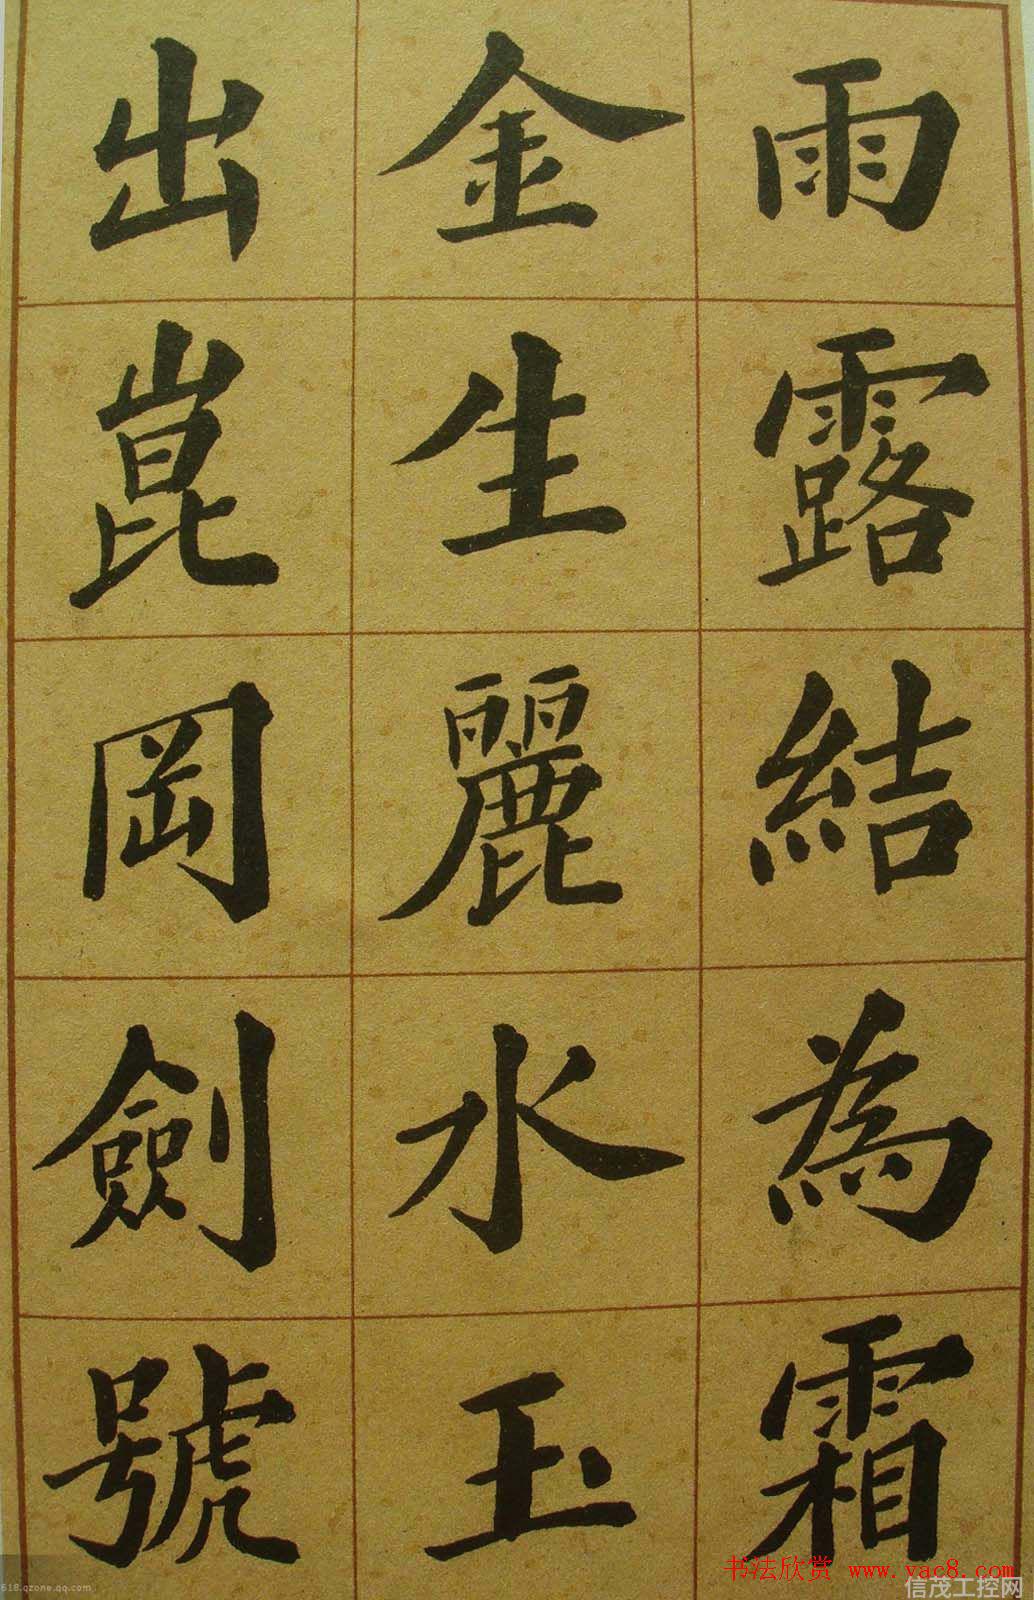 雨露結為霜
金生麗水玉
出崑岡劍號
书法欣赏 www.yac8.com
信茂工控网
618.qzone.qq.com